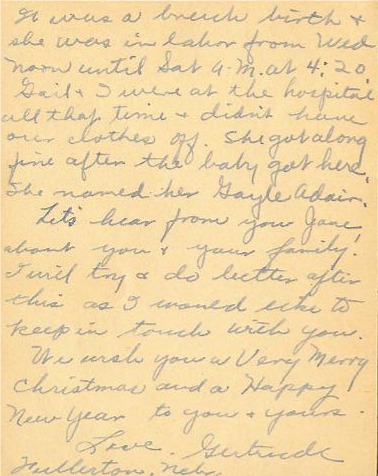 It was a breech birth &
she was in labor from Wed
noon until Sat A.M. at 4:20
Gail & I were at the hospital
all that time & didn't have
our clothes off. She got along
fine after the baby got here.
She named her Gayle Adair.
Let's hear from you Jane,
about you & your family!
I will try & do better after
this as I would like to
keep in touch with you.
We wish you a Very Merry
Christmas and a Happy
New Year to you & yours.
Love. Gertrude
Fullerton, Nebr.